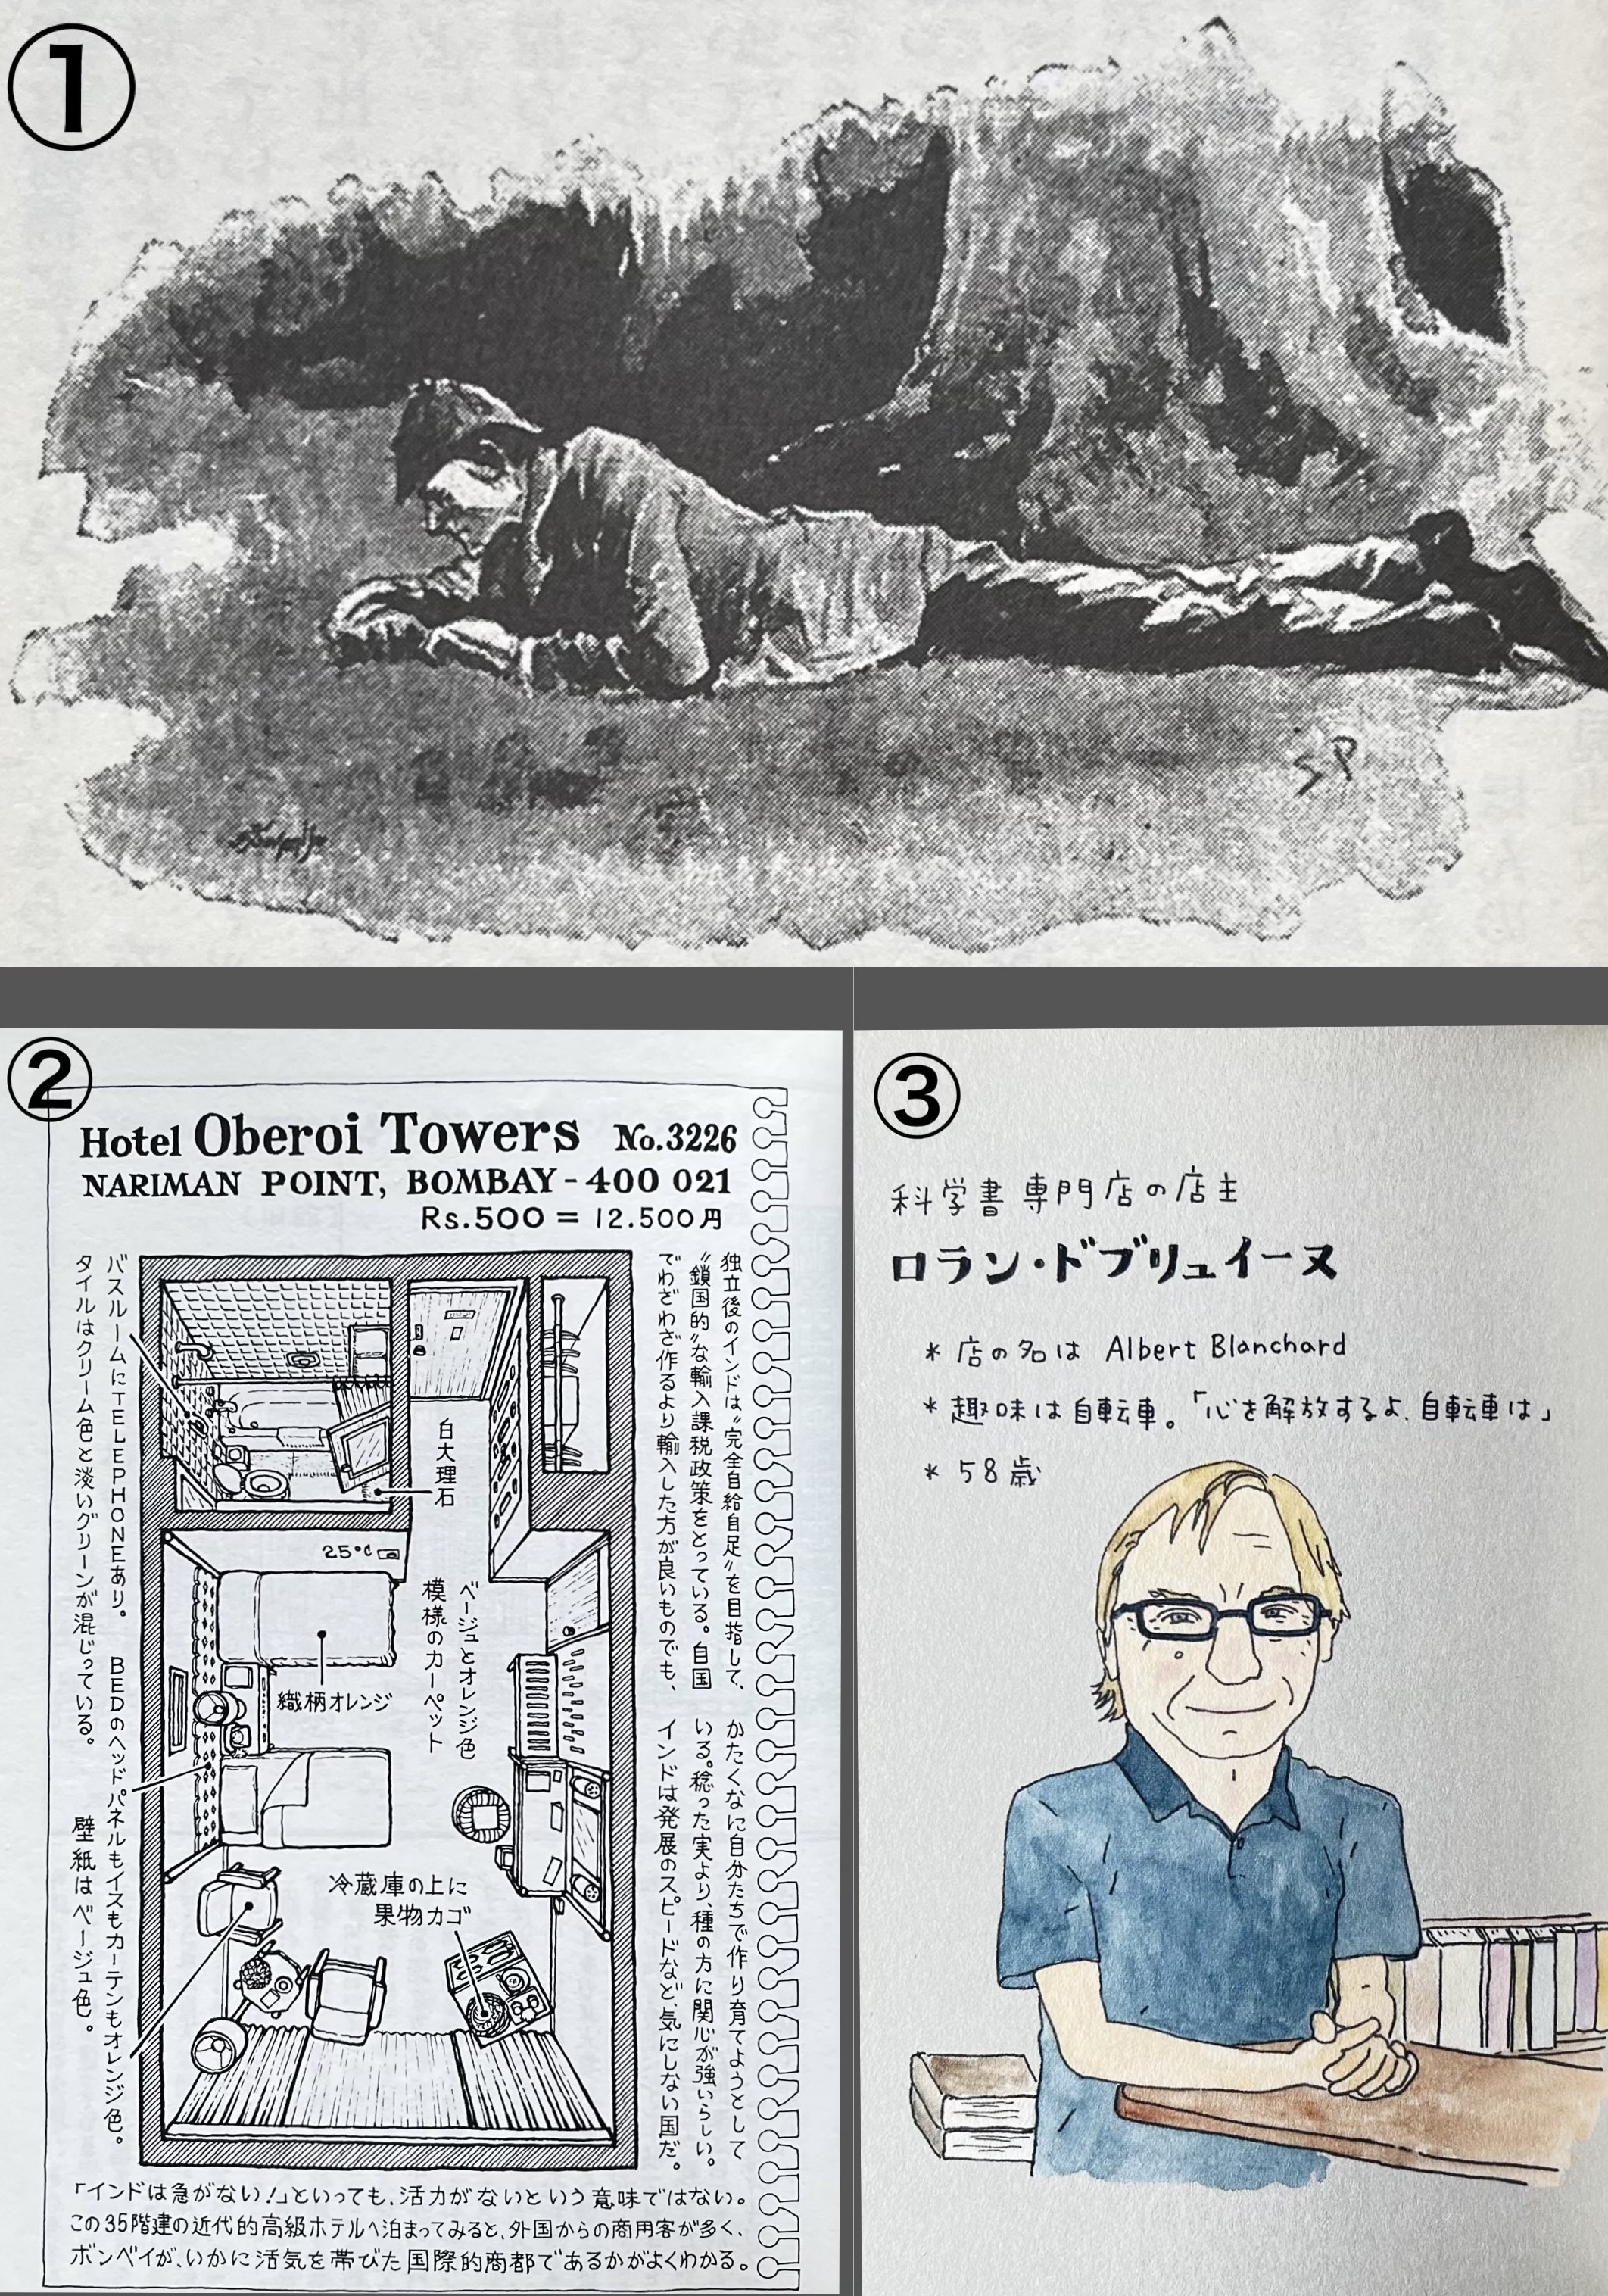 ①
SP
②
Hotel Oberoi Towers No.3226
NARIMAN POINT, BOMBAY-400 021
Rs.500 = 12.500円
独立後のインドは〝完全自給自足〟を目指して、
〝鎖国的〟な輸入課税政策をとっている。自国
でわざわざ作るより輸入した方が良いものでも、
かたくなに自分たちで作り育てようとして
いる。稔った実より、種の方に関心が強いらしい。
インドは発展のスピードなど、気にしない国だ。
白大理石
25°C
ベージュとオレンジ色
模様のカーペット
織柄オレンジ
冷蔵庫の上に
果物カゴ
バスルームにTELEPHONEあり。
タイルはクリーム色と淡いグリーンが混じっている。
BEDのヘッドパネルもイスもカーテンもオレンジ色。
壁紙はベージュ色。
「インドは急がない!」といっても、活力がないという意味ではない。
この35階建の近代的高級ホテルへ泊まってみると、外国からの商用客が多く、
ボンベイが、いかに活気を帯びた国際的商都であるかがよくわかる。
③
科学書専門店の店主
ロラン・ドブリュイーヌ
* 店の名は Albert Blanchard
* 趣味は自転車。「心を解放するよ、自転車は」
* 58歳